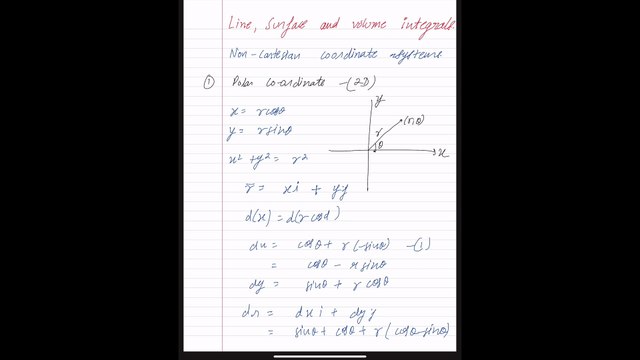 Line, Surface and volume integrals.
Non-Cartesian coordinate systems
① Polar co-ordinate -(2-D)
x = rcosθ
y = rsinθ
x² + y² = r²
y
(r,θ)
r
θ
x
r̄ = xi + yj
d(x) = d(r cosθ)
dx = cosθ + r(-sinθ) -(1)
= cosθ - rsinθ
dy = sinθ + r cosθ
dr = dxi + dyj
= sinθ + cosθ + r(cosθ-sinθ)